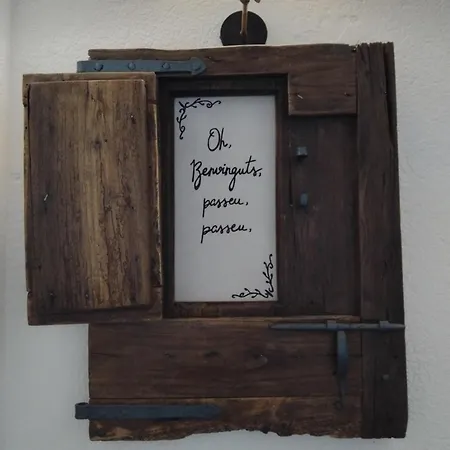 Oh,
Benvinguts,
passeu,
passeu,